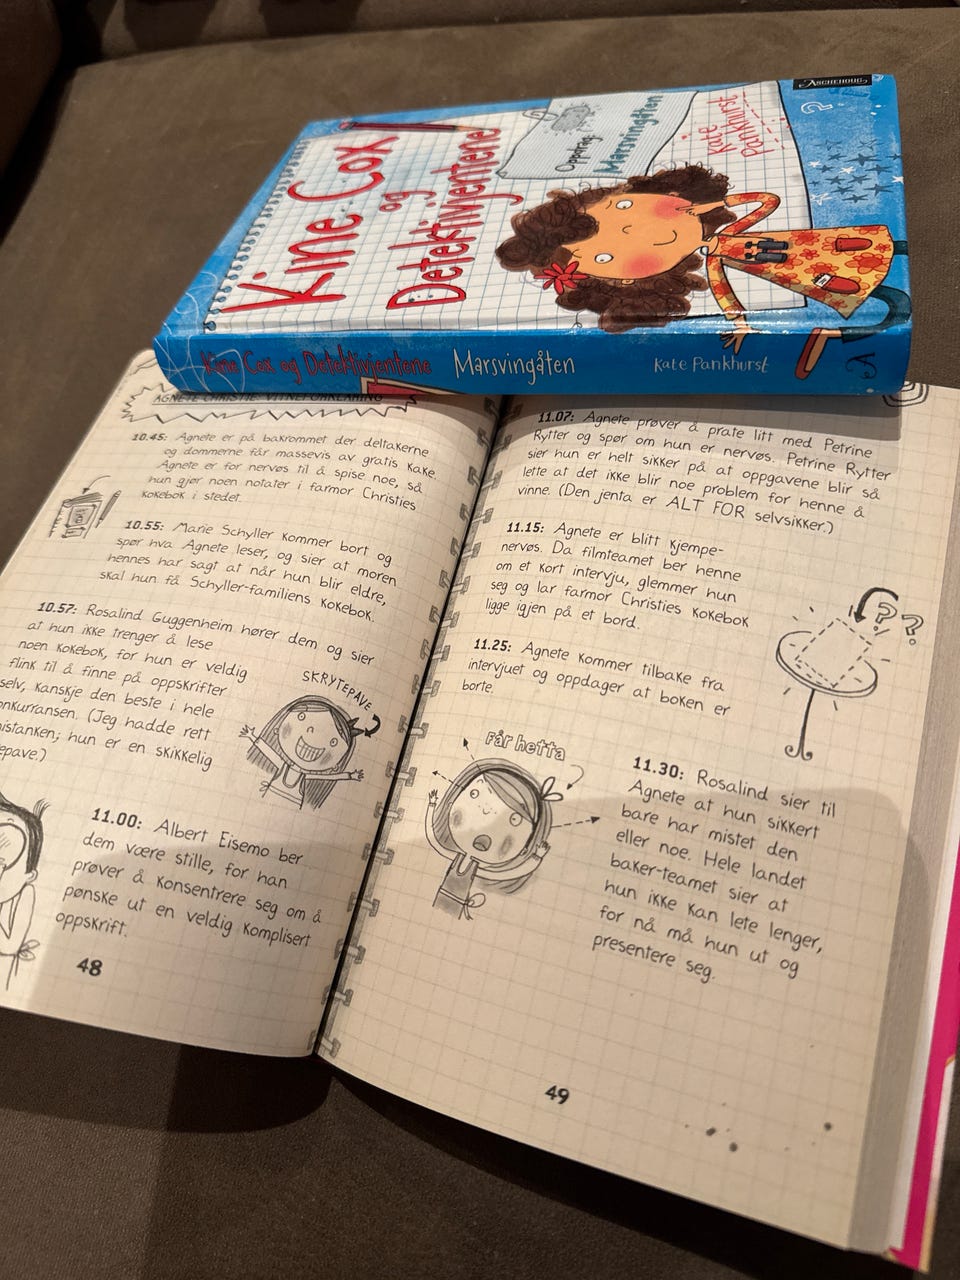 ASCHEHOUG
Kine Cox
og
Detektivjentene
Oppdrag:
Marsvingåten
Kate
Pankhurst
Kine Cox og Detektivjentene Marsvingåten Kate Pankhurst
AGNETE CHRISTIE: VITNEFORKLARING
10.45: Agnete er på bakrommet der deltakerne
og dommerne får massevis av gratis kake.
Agnete er for nervøs til å spise noe, så
hun gjør noen notater i farmor Christies
kokebok i stedet.
10.55: Marie Schyller kommer bort og
spør hva Agnete leser, og sier at moren
hennes har sagt at når hun blir eldre,
skal hun få Schyller-familiens kokebok.
10.57: Rosalind Guggenheim hører dem og sier
at hun ikke trenger å lese
noen kokebok, for hun er veldig
flink til å finne på oppskrifter
selv, kanskje den beste i hele
konkurransen. (Jeg hadde rett
mistanken; hun er en skikkelig
epave.)
SKRYTEPAVE
11.00: Albert Eisemo ber
dem være stille, for han
prøver å konsentrere seg om å
pønske ut en veldig komplisert
oppskrift.
48
11.07: Agnete prøver å prate litt med Petrine
Rytter og spør om hun er nervøs. Petrine Rytter
sier hun er helt sikker på at oppgavene blir så
lette at det ikke blir noe problem for henne å
vinne. (Den jenta er ALT FOR selvsikker.)
11.15: Agnete er blitt kjempe-
nervøs. Da filmteamet ber henne
om et kort intervju, glemmer hun
seg og lar farmor Christies kokebok
ligge igjen på et bord.
??
11.25: Agnete kommer tilbake fra
intervjuet og oppdager at boken er
borte.
Får hetta
11.30: Rosalind sier til
Agnete at hun sikkert
bare har mistet den
eller noe. Hele landet
baker-teamet sier at
hun ikke kan lete lenger,
for nå må hun ut og
presentere seg.
49